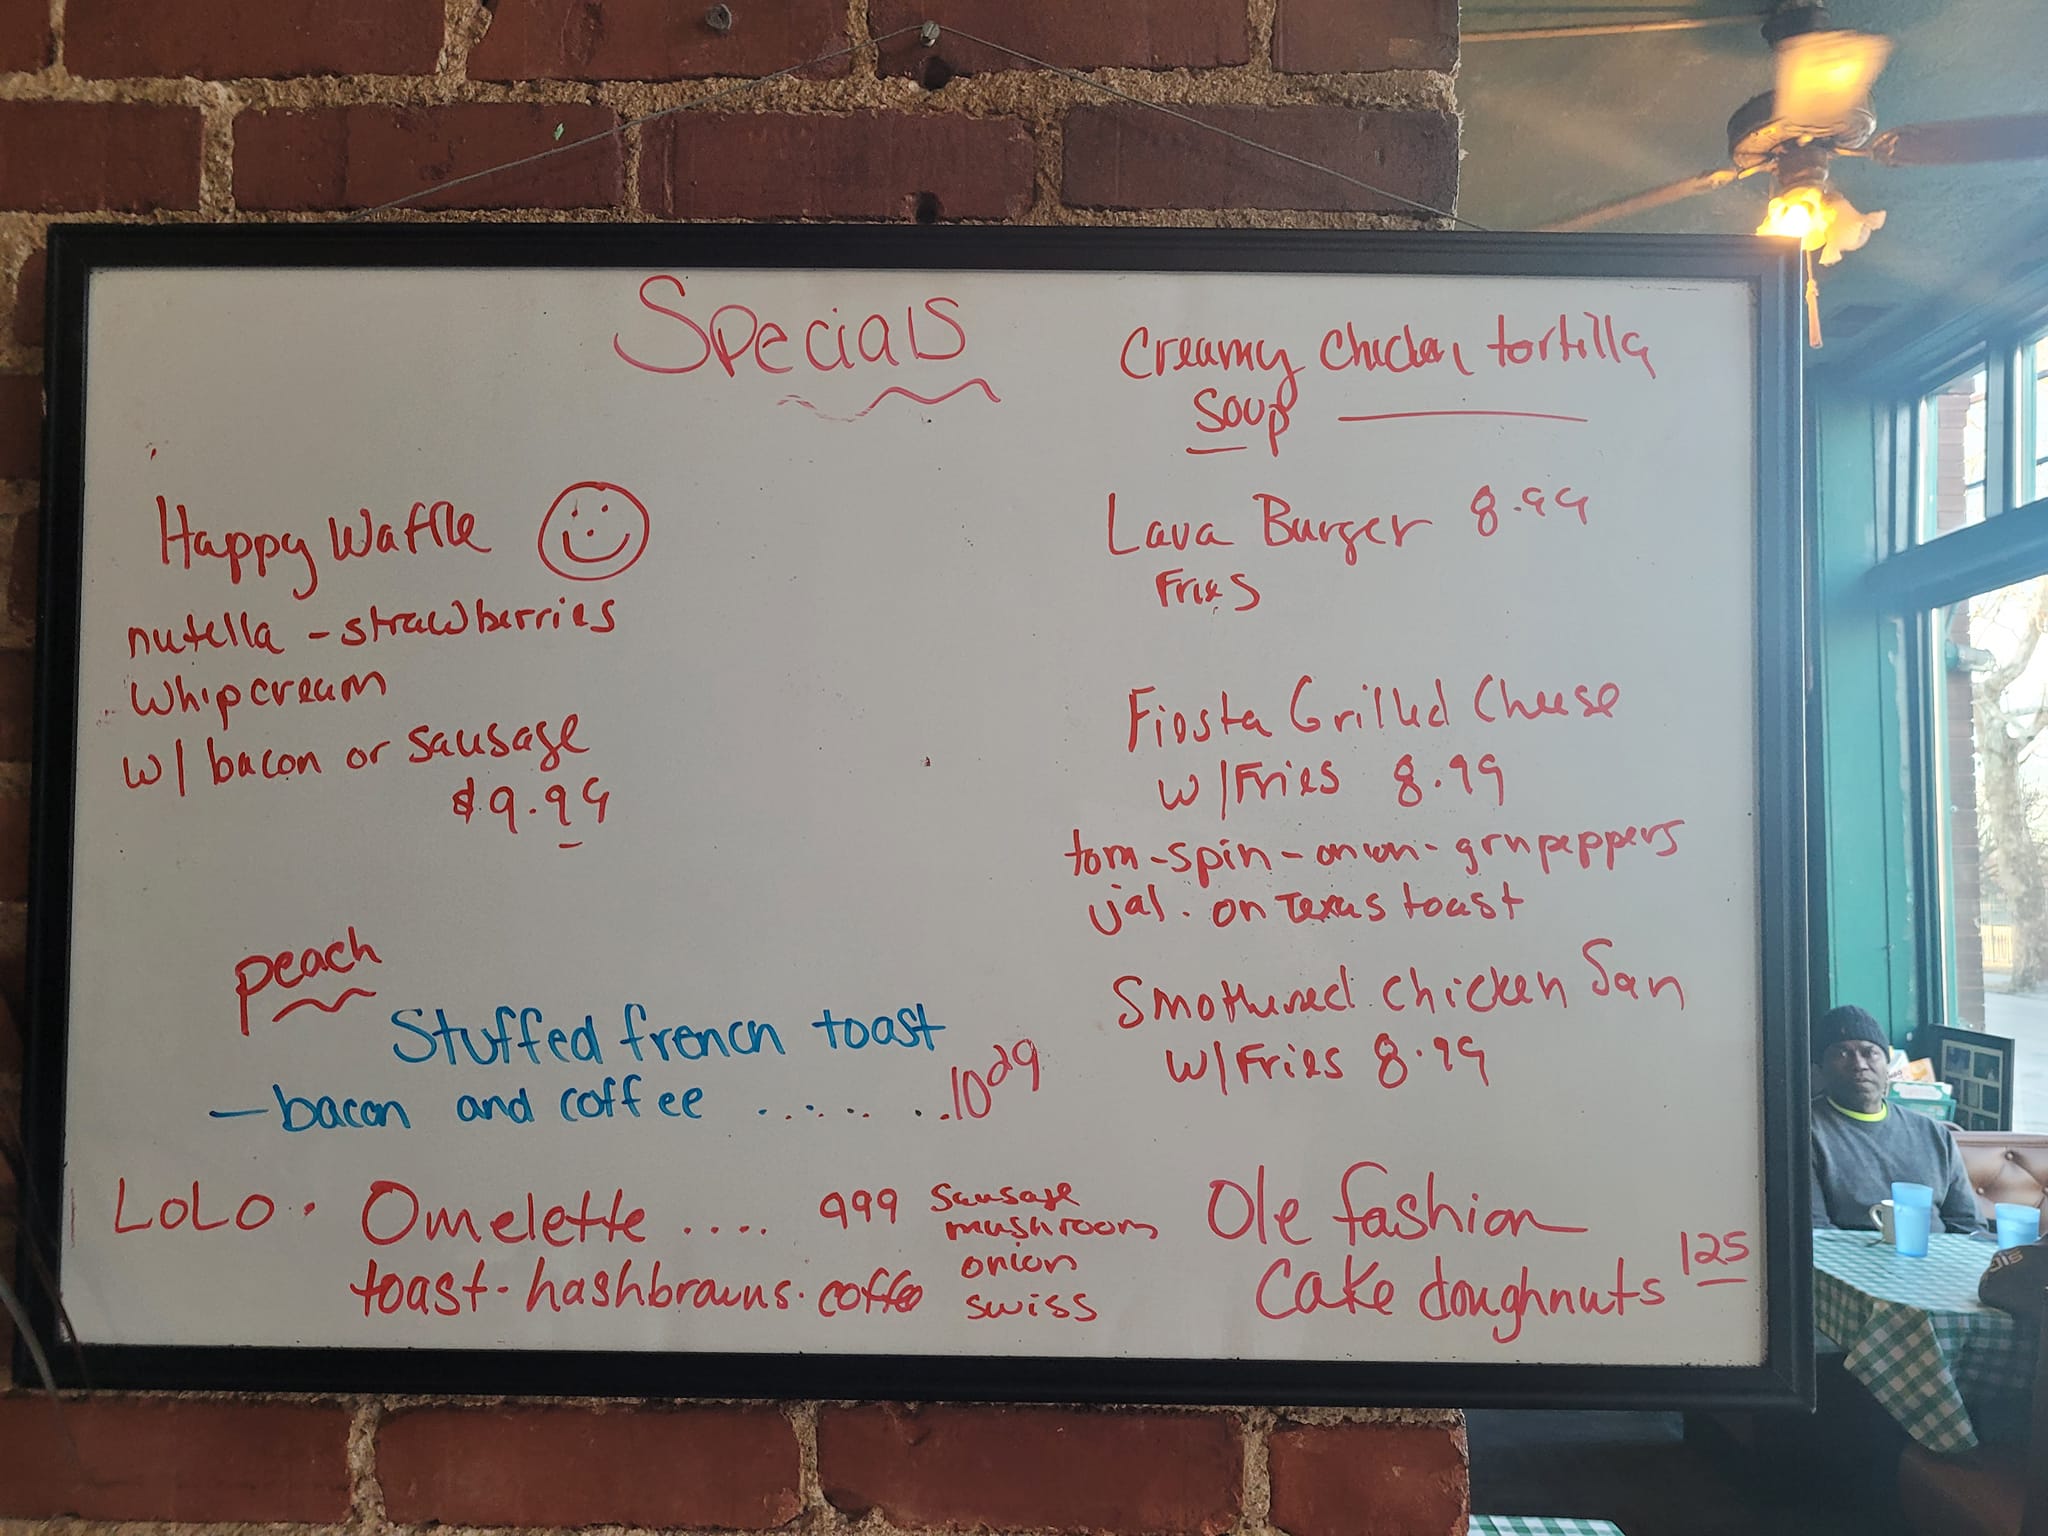 Specials
Happy Waffle
nutella - strawberries
whipcream
w/ bacon or sausage
$9.99
peach
Stuffed french toast
- bacon and coffee ......... 10.29
LoLo. Omelette .... 999
toast - hashbrowns. coffee
sausage
mushroom
onion
swiss
Creamy chicken tortilla
soup
Lava Burger 8.99
Fries
Fiesta Grilled Cheese
w/Fries 8.99
tom - spin - onion - grn peppers
jal. on Texas toast
Smothered chicken San
w/Fries 8.99
Ole fashion
Cake doughnuts 125